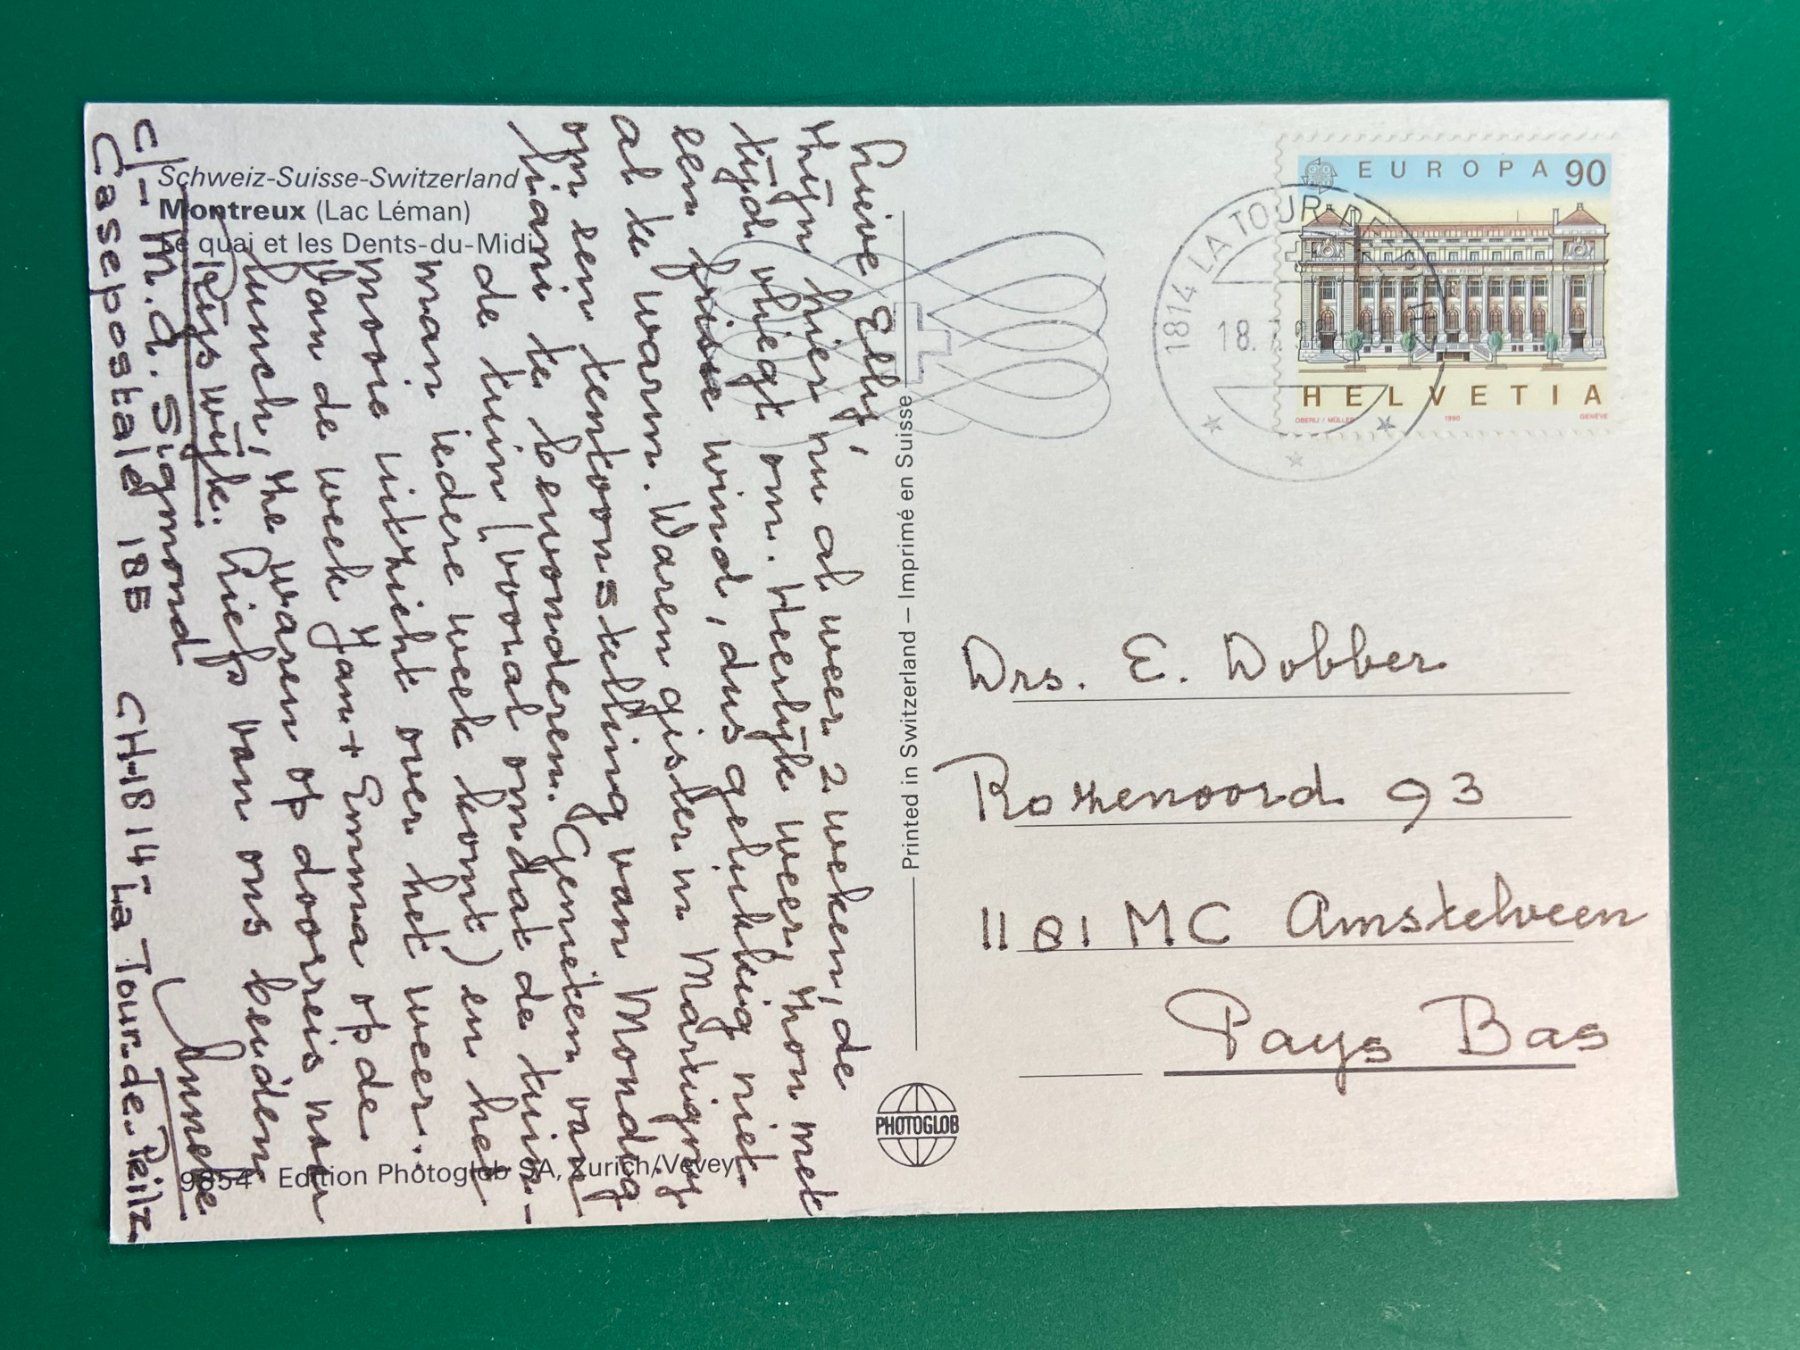 Schweiz-Suisse-Switzerland
Montreux (Lac Léman)
Le quai et les Dents-du-Midi
Lieve Elly,
Zijn hier nu al weer 2 weken, de
tijd vliegt om. Heerlijk weer, zon met
een frisse wind, dus gelukkig niet
al te warm. Waren gister in Martigny
om een tentoonstelling van Mondig
liani te bewonderen. Genieten van
de tuin (vooral omdat de tuin-
man iedere week komt) en het
mooie uitzicht over het meer.
Van de week Jan + Emma op de
lunch, ze waren op doorreis naar
Rijswijk. Liefs van ons beiden
Anneke
c/- M.d. Sigmond
Casepostale 185 CH-1814-La Tour-de-Peilz
9854 Edition Photoglob SA, Zürich/Vevey
Printed in Switzerland – Imprimé en Suisse
PHOTOGLOB
1814 LA TOUR-DE-PEILZ
18.7
EUROPA 90
HELVETIA
OBERLI / MÜLLER 1990 GENÈVE
Drs. E. Dobber
Rozenoord 93
1181 MC Amstelveen
Pays Bas